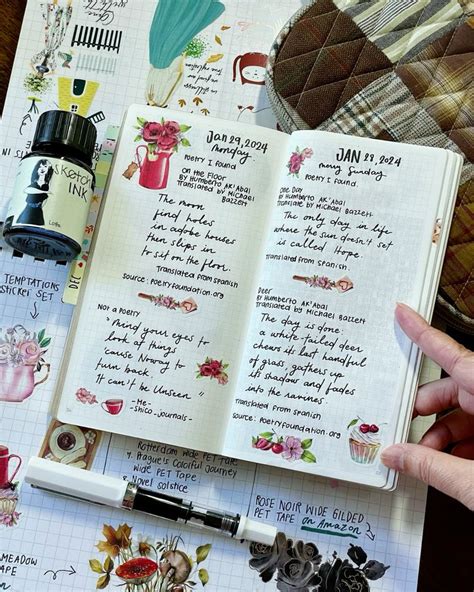 Jan 29, 2024
monday
Poetry I found
on the Floor
By Humberto Ak'abal
Translated by Michael
Bazzett
The moon
find holes
in adobe houses
then slips in
to sit on the floor.
Translated from Spanish
Source: Poetryfoundation.org
Not a Poetry
"Mind your eyes to
look at things
'cause Noway to
turn back.
It can't be Unseen"
-Me-
-Shico-Journals-
JAN 28, 2024
Sunday
Poetry I found
One Day
By Humberto Ak'abal
Translated by Michael Bazzett
The only day in life
where the sun doesn't set
is called Hope.
Translated from Spanish.
Deer
By Humberto Ak'abal
Translated by Michael Bazzett
The day is done:
a white-tailed deer
chews its last handful
of grass, gathers up
its shadow and fades
into the ravines.
Translated from Spanish
Source: Poetryfoundation.org
Sketch
INK
Lotte
TEMPTATIONS
STICKER SET
Rotterdam Wide PET Tape
7. Prague's Colorful Journey
Wide PET Tape
8 Novel Solstice
ROSE NOIR WIDE GILDED
PET TAPE on Amazon
MEADOW